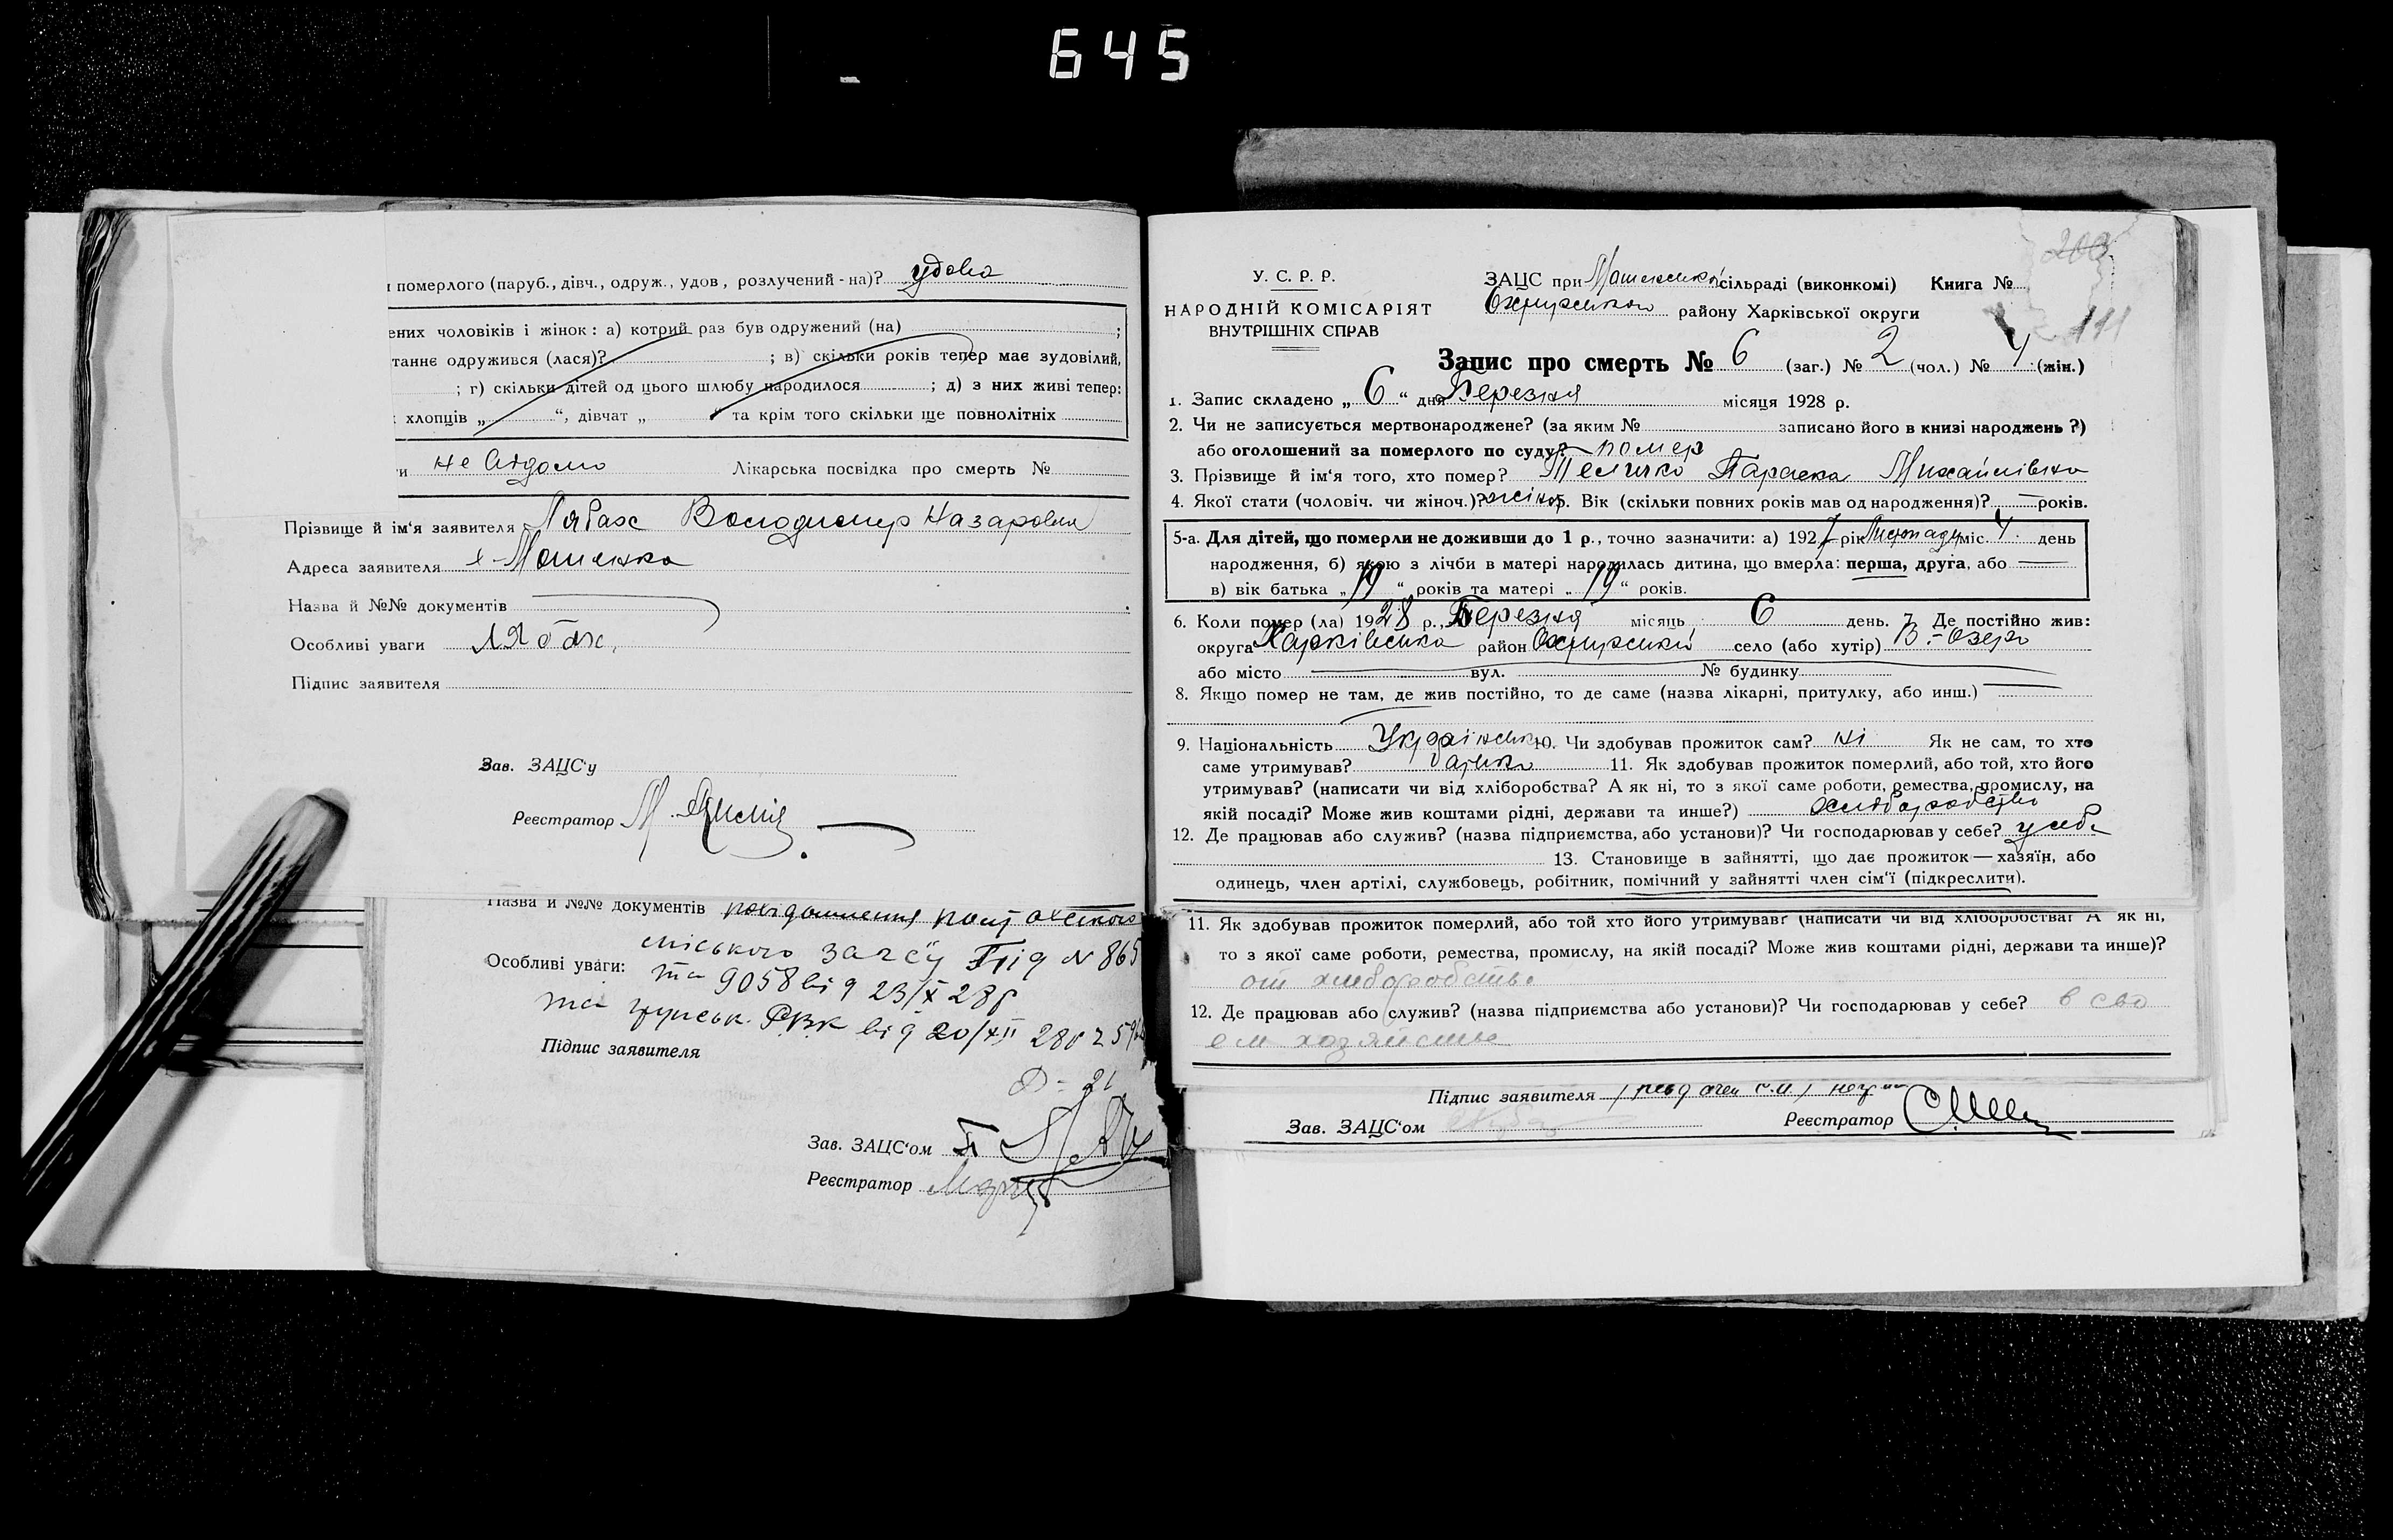 645
померлого (паруб., дівч., одруж., удов., розлучений - на)? удова
ених чоловіків і жінок: а) котрий раз був одружений (на) ;
танне одружився (лася)? ; в) скільки років тепер має зудовілий,
; г) скільки дітей од цього шлюбу народилося ; д) з них живі тепер:
хлопців „ “, дівчат „ “ та крім того скільки ще повнолітніх
и не відомо Лікарська посвідка про смерть №
Прізвище й ім‘я заявителя Лябах Володимир Назарович
Адреса заявителя х-Машенка
Назва й №№ документів
Особливі уваги Лябах,
Підпис заявителя
Зав. ЗАЦС‘у
Реєстратор М.
Назва й №№ документів
міського загсу Від N 865
Особливі уваги: та 9058 від 23/X 28р
та РВК від 20/XII 28р
Підпис заявителя
Зав. ЗАЦС‘ом
Реєстратор
200
111
У. С. Р. Р.
НАРОДНІЙ КОМІСАРІЯТ
ВНУТРІШНІХ СПРАВ
ЗАЦС при сільраді (виконкомі) Книга №
району Харківської округи
Запис про смерть № 6 (заг.) № 2 (чол.) № 4 (жін.)
1. Запис складено „ 6 “ дня Березня місяця 1928 р.
2. Чи не записується мертвонароджене? (за яким № записано його в книзі народжень?)
або оголошений за померлого по суду? – помер
3. Прізвище й ім‘я того, хто помер? Теличко Параска Михайлівна
4. Якої стати (чоловіч. чи жіноч.)? жіноч 5. Вік (скільки повних років мав од народження)? — років.
5-а. Для дітей, що померли не доживши до 1 р., точно зазначити: а) 1927 рік Листопаду міс. 4 день
народження, б) якою з лічби в матері народилась дитина, що вмерла: перша, друга, або —
в) вік батька „ 19 “ років та матері „ 19 “ років.
6. Коли помер (ла) 1928 р., Березня місяць 6 день. 7. Де постійно жив:
округа Харківська район село (або хутір) В.-Озеро
або місто вул. № будинку
8. Якщо помер не там, де жив постійно, то де саме (назва лікарні, притулку, або инш.) —
9. Національність Українська 10. Чи здобував прожиток сам? ні Як не сам, то хто
саме утримував? батько 11. Як здобував прожиток померлий, або той, хто його
утримував? (написати чи від хліборобства? А як ні, то з якої саме роботи, ремества, промислу, на
якій посаді? Може жив коштами рідні, держави та инше?) хліборобство
12. Де працював або служив? (назва підприємства, або установи)? Чи господарював у себе? у себе
13. Становище в зайнятті, що дає прожиток — хазяїн, або
одинець, член артілі, службовець, робітник, помічний у зайнятті член сім‘ї (підкреслити).
11. Як здобував прожиток померлий, або той хто його утримував? (написати чи від хліборобства? А як ні,
то з якої саме роботи, ремества, промислу, на якій посаді? Може жив коштами рідні, держави та инше)?
от хлеборобства
12. Де працював або служив? (назва підприємства або установи)? Чи господарював у себе? в сво
ем хозяйстве
Підпис заявителя
Зав. ЗАЦС‘ом Реєстратор